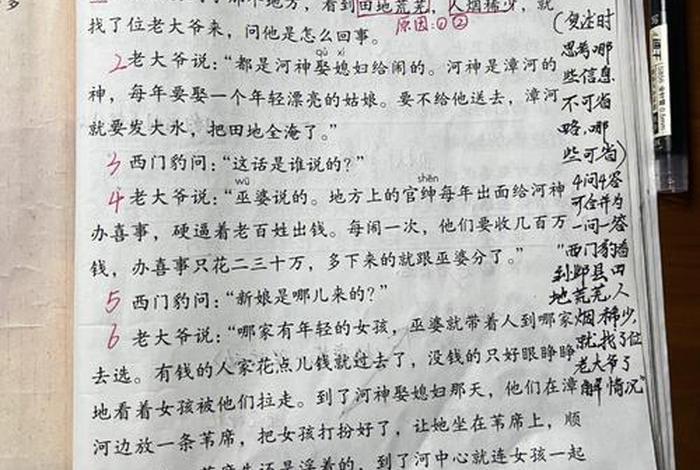 多
看到田地荒芜，人烟稀少，就
找了位老大爷来，问他是怎么回事。
原因：①②
qǔ xí
2 老大爷说：“都是河神娶媳妇给闹的。河神是漳河的
神，每年要娶一个年轻漂亮的姑娘。要不给他送去，漳河
就要发大水，把田地全淹了。”
3 西门豹问：“这话是谁说的？”
wū shēn
4 老大爷说：“巫婆说的。地方上的官绅每年出面给河神
办喜事，硬逼着老百姓出钱。每闹一次，他们要收几百万
钱，办喜事只花二三十万，多下来的就跟巫婆分了。”
5 西门豹问：“新娘是哪儿来的？”
6 老大爷说：“哪家有年轻的女孩，巫婆就带着人到哪家
去选。有钱的人家花点儿钱就过去了，没钱的只好眼睁睁
地看着女孩被他们拉走。到了河神娶媳妇那天，他们在漳
河边放一条苇席，把女孩打扮好了，让她坐在苇席上，顺
还是浮着的，到了河中心就连女孩一起
（复述时
思考哪
些信息
不可省
略，哪
些可省）
4问4答
可合并为
一问一答
“西门豹看
到邺县田
地荒芜人
烟稀少，
就找了位
老大爷了
解情况”